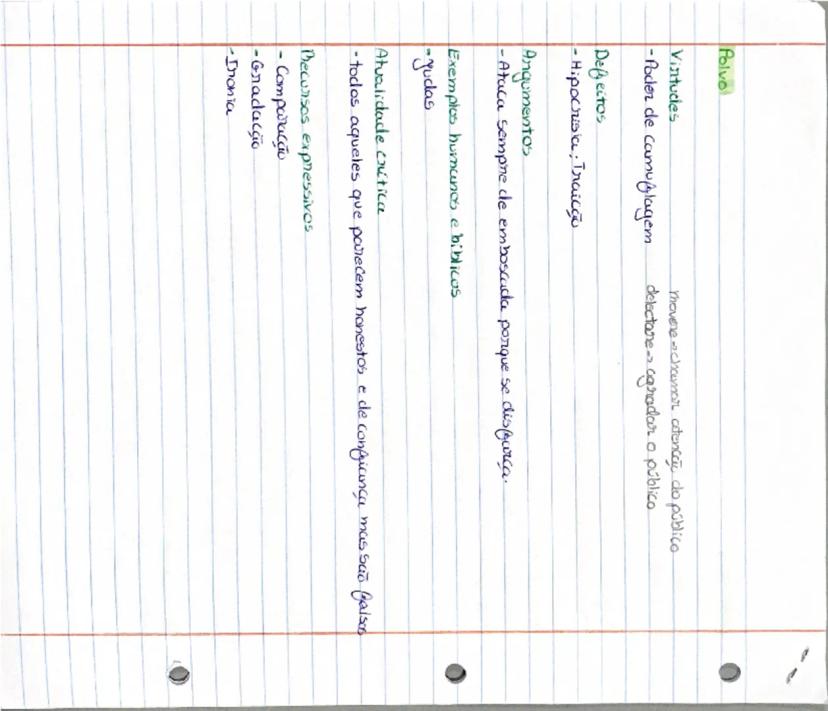 Polvo
Virtudes
movere → chamar atenção do público
- Poder de camuflagem
delectare → agradar o público
Defeitos
- Hipocrisia; Traicção
Argumentos
- Ataca sempre de emboscada porque se disfarça.
Exemplos humanos e bíblicos
- Judas
Atualidade crítica
- todos aqueles que parecem honestos e de confiança mas são falsos
Recursos expressivos
- Comparação
- Gradacção
- Ironia